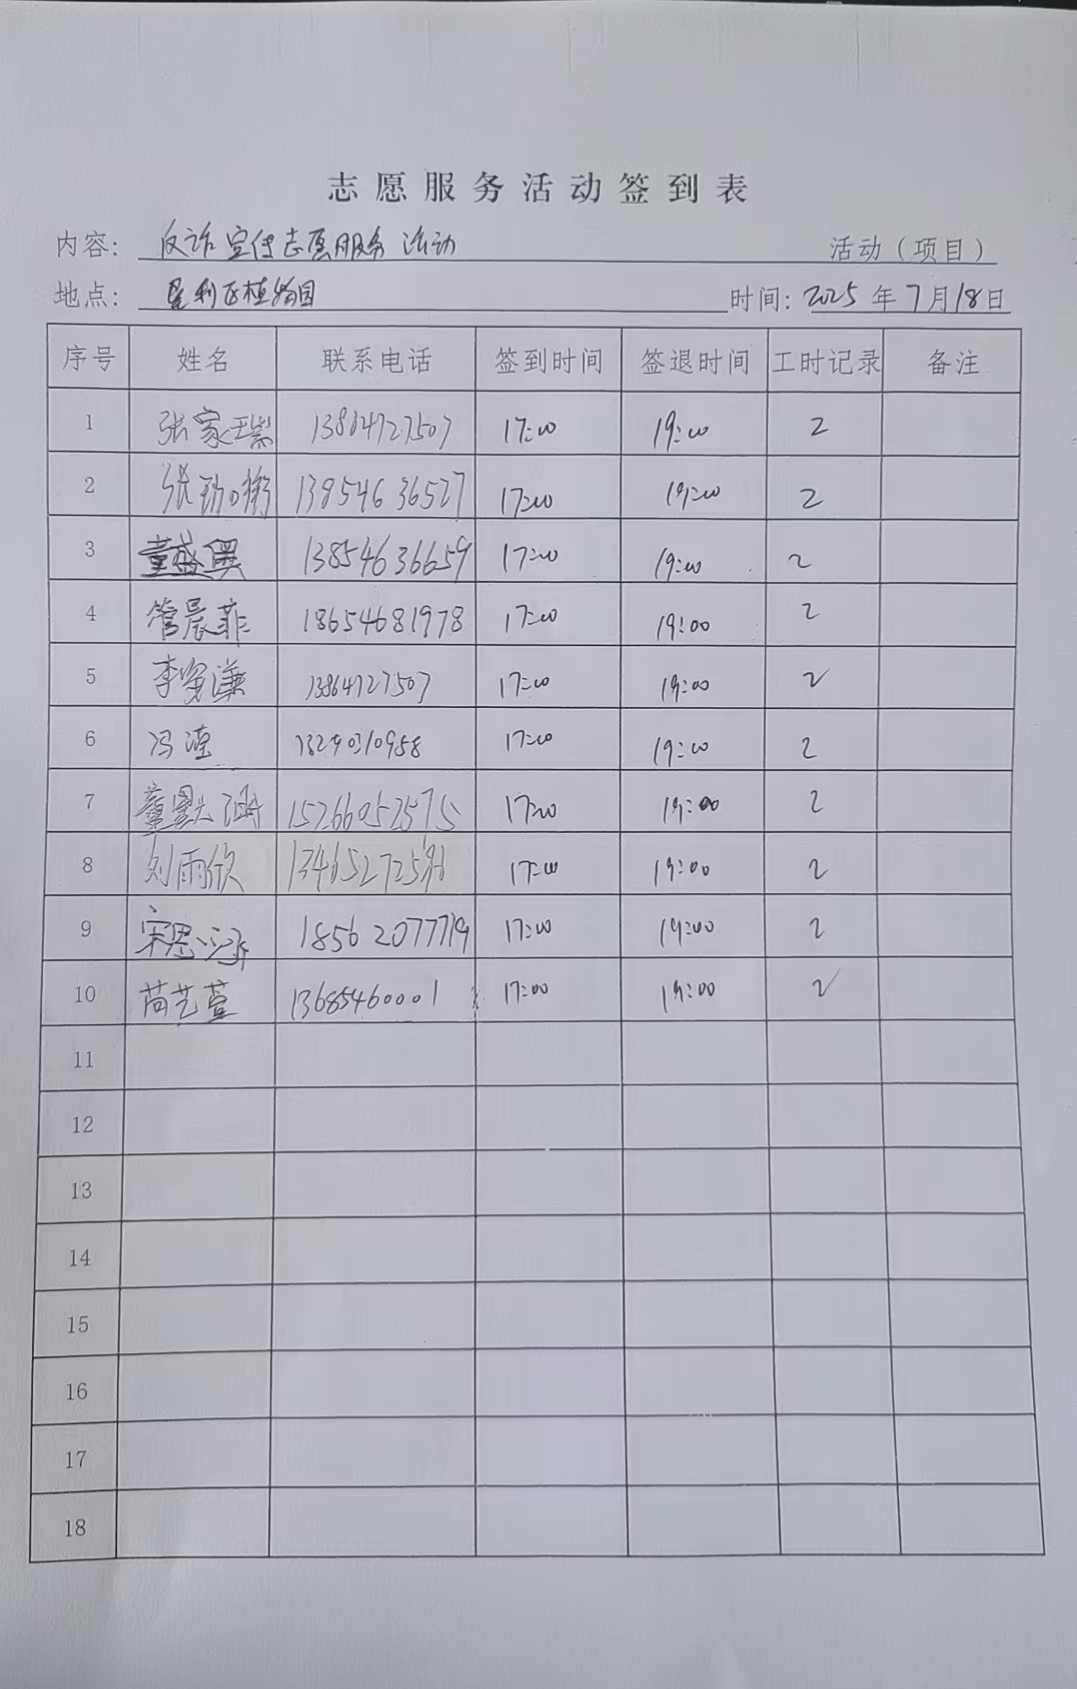 志愿服务活动签到表
内容: 反诈宣传志愿服务活动 活动（项目）
地点: 垦利区植物园 时间: 2025年7月18日
序号 姓名 联系电话 签到时间 签退时间 工时记录 备注
1 张家 13864727507 17:00 19:00 2
2 张 13854636527 17:00 19:00 2
3 董盛 13854636659 17:00 19:00 2
4 管晨菲 18654681978 17:00 19:00 2
5 李 谦 13864727507 17:00 19:00 2
6 冯 17:00 19:00 2
7 董 涵 15266052575 17:00 19:00 2
8 刘雨欣 17:00 19:00 2
9 宋思 18562077719 17:00 19:00 2
10 苘艺萱 13685460001 17:00 19:00 2
11
12
13
14
15
16
17
18